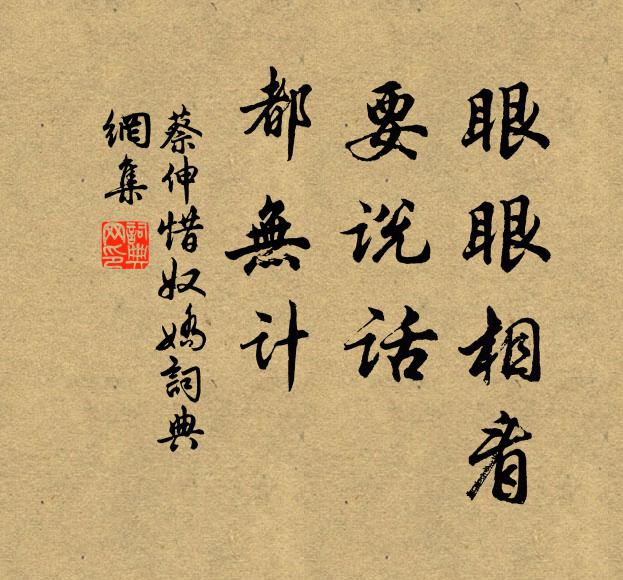 眼眼相看
要说话
都無计
蔡伸惜奴嬌詞典
網集
詞典
网印